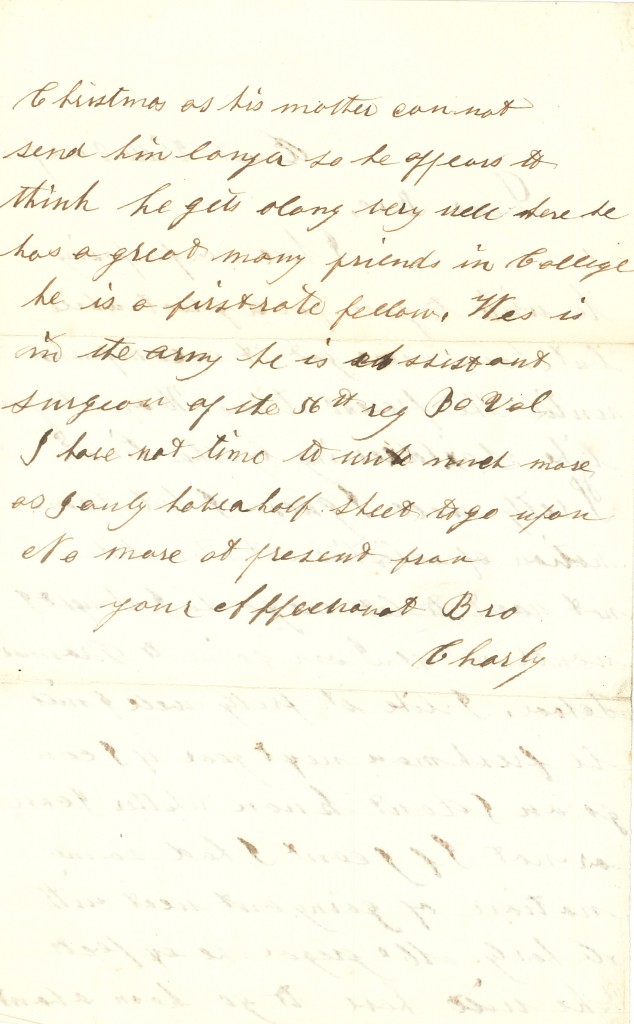 Christmas as his mother can not
send him longer so he appears to
think he gets along very well here he
has a great many friends in College
he is a first rate fellow. Wes is
in the army he is assistant
surgeon of the 56th reg Pa Vol
I have not time to write much more
as I only have a half sheet to go upon
No more at present from
your Affectionat Bro
Charly